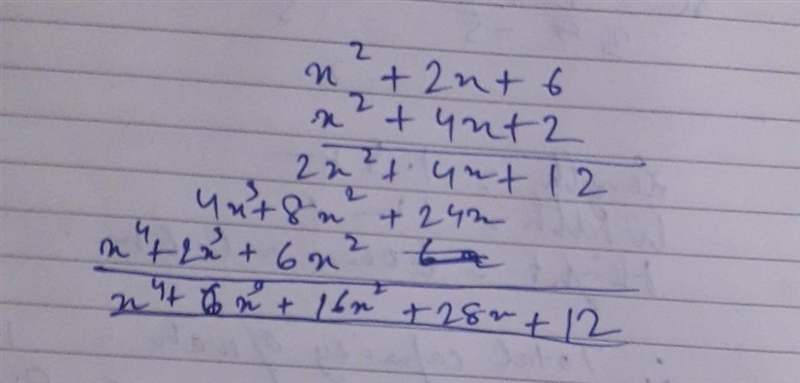 x² + 2x + 6
x² + 4x + 2
2x² + 4x + 12
4x³ + 8x² + 24x
x⁴ + 2x³ + 6x²
x⁴ + 6x³ + 16x² + 28x + 12